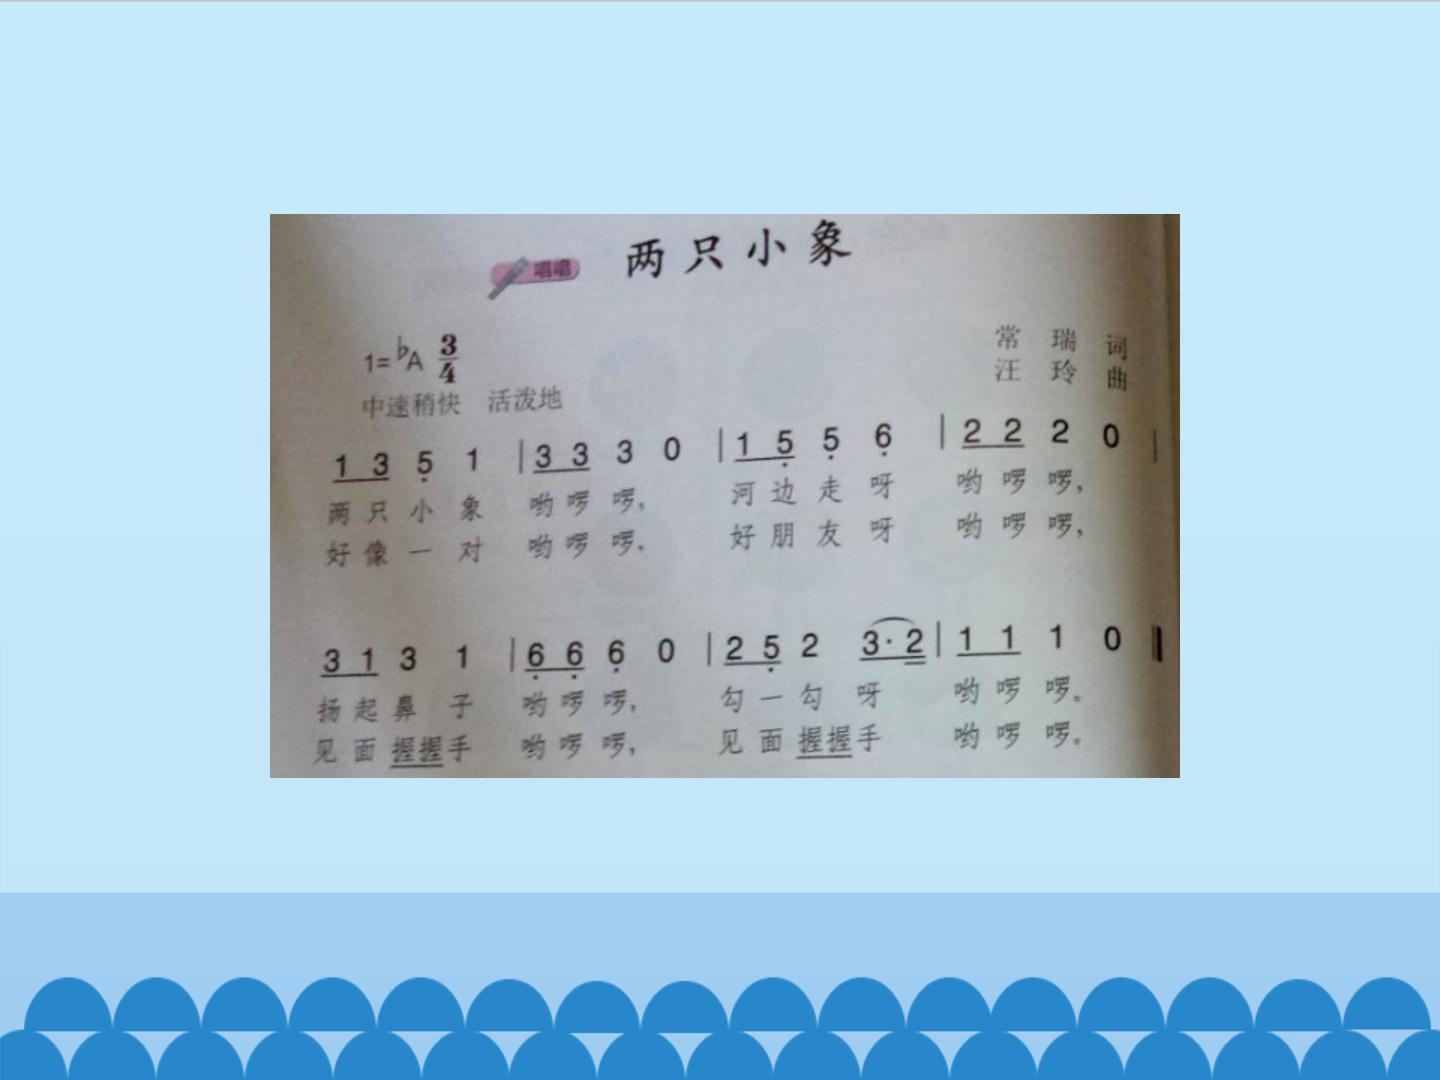 两只小象
唱唱
1=♭A 3/4
常 瑞 词
汪 玲 曲
中速稍快 活泼地
1 3 5 1 | 3 3 3 0 | 1 5 5 6 | 2 2 2 0 |
两 只 小 象 哟 啰 啰, 河 边 走 呀 哟 啰 啰,
好 像 一 对 哟 啰 啰, 好 朋 友 呀 哟 啰 啰,
3 1 3 1 | 6 6 6 0 | 2 5 2 3· 2 | 1 1 1 0 ‖
扬 起 鼻 子 哟 啰 啰, 勾 一 勾 呀 哟 啰 啰。
见 面 握握手 哟 啰 啰, 见 面 握握手 哟 啰 啰。